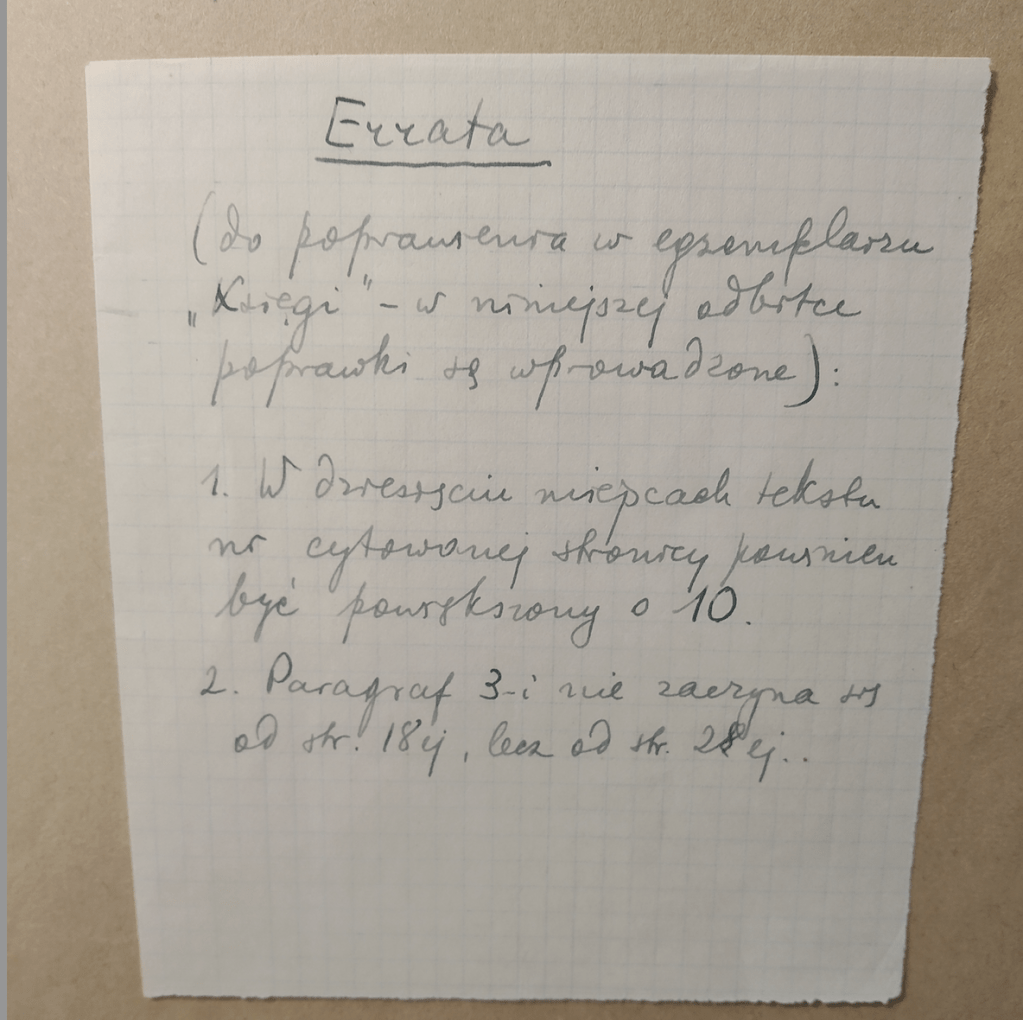 Errata
(do poprawienia w egzemplarzu
„Księgi" – w niniejszej odbitce
poprawki są wprowadzone):
1. W dziesięciu miejscach tekstu
nr cytowanej stronicy powinien
być powiększony o 10.
2. Paragraf 3-i nie zaczyna się
od str. 18ej, lecz od str. 28ej..